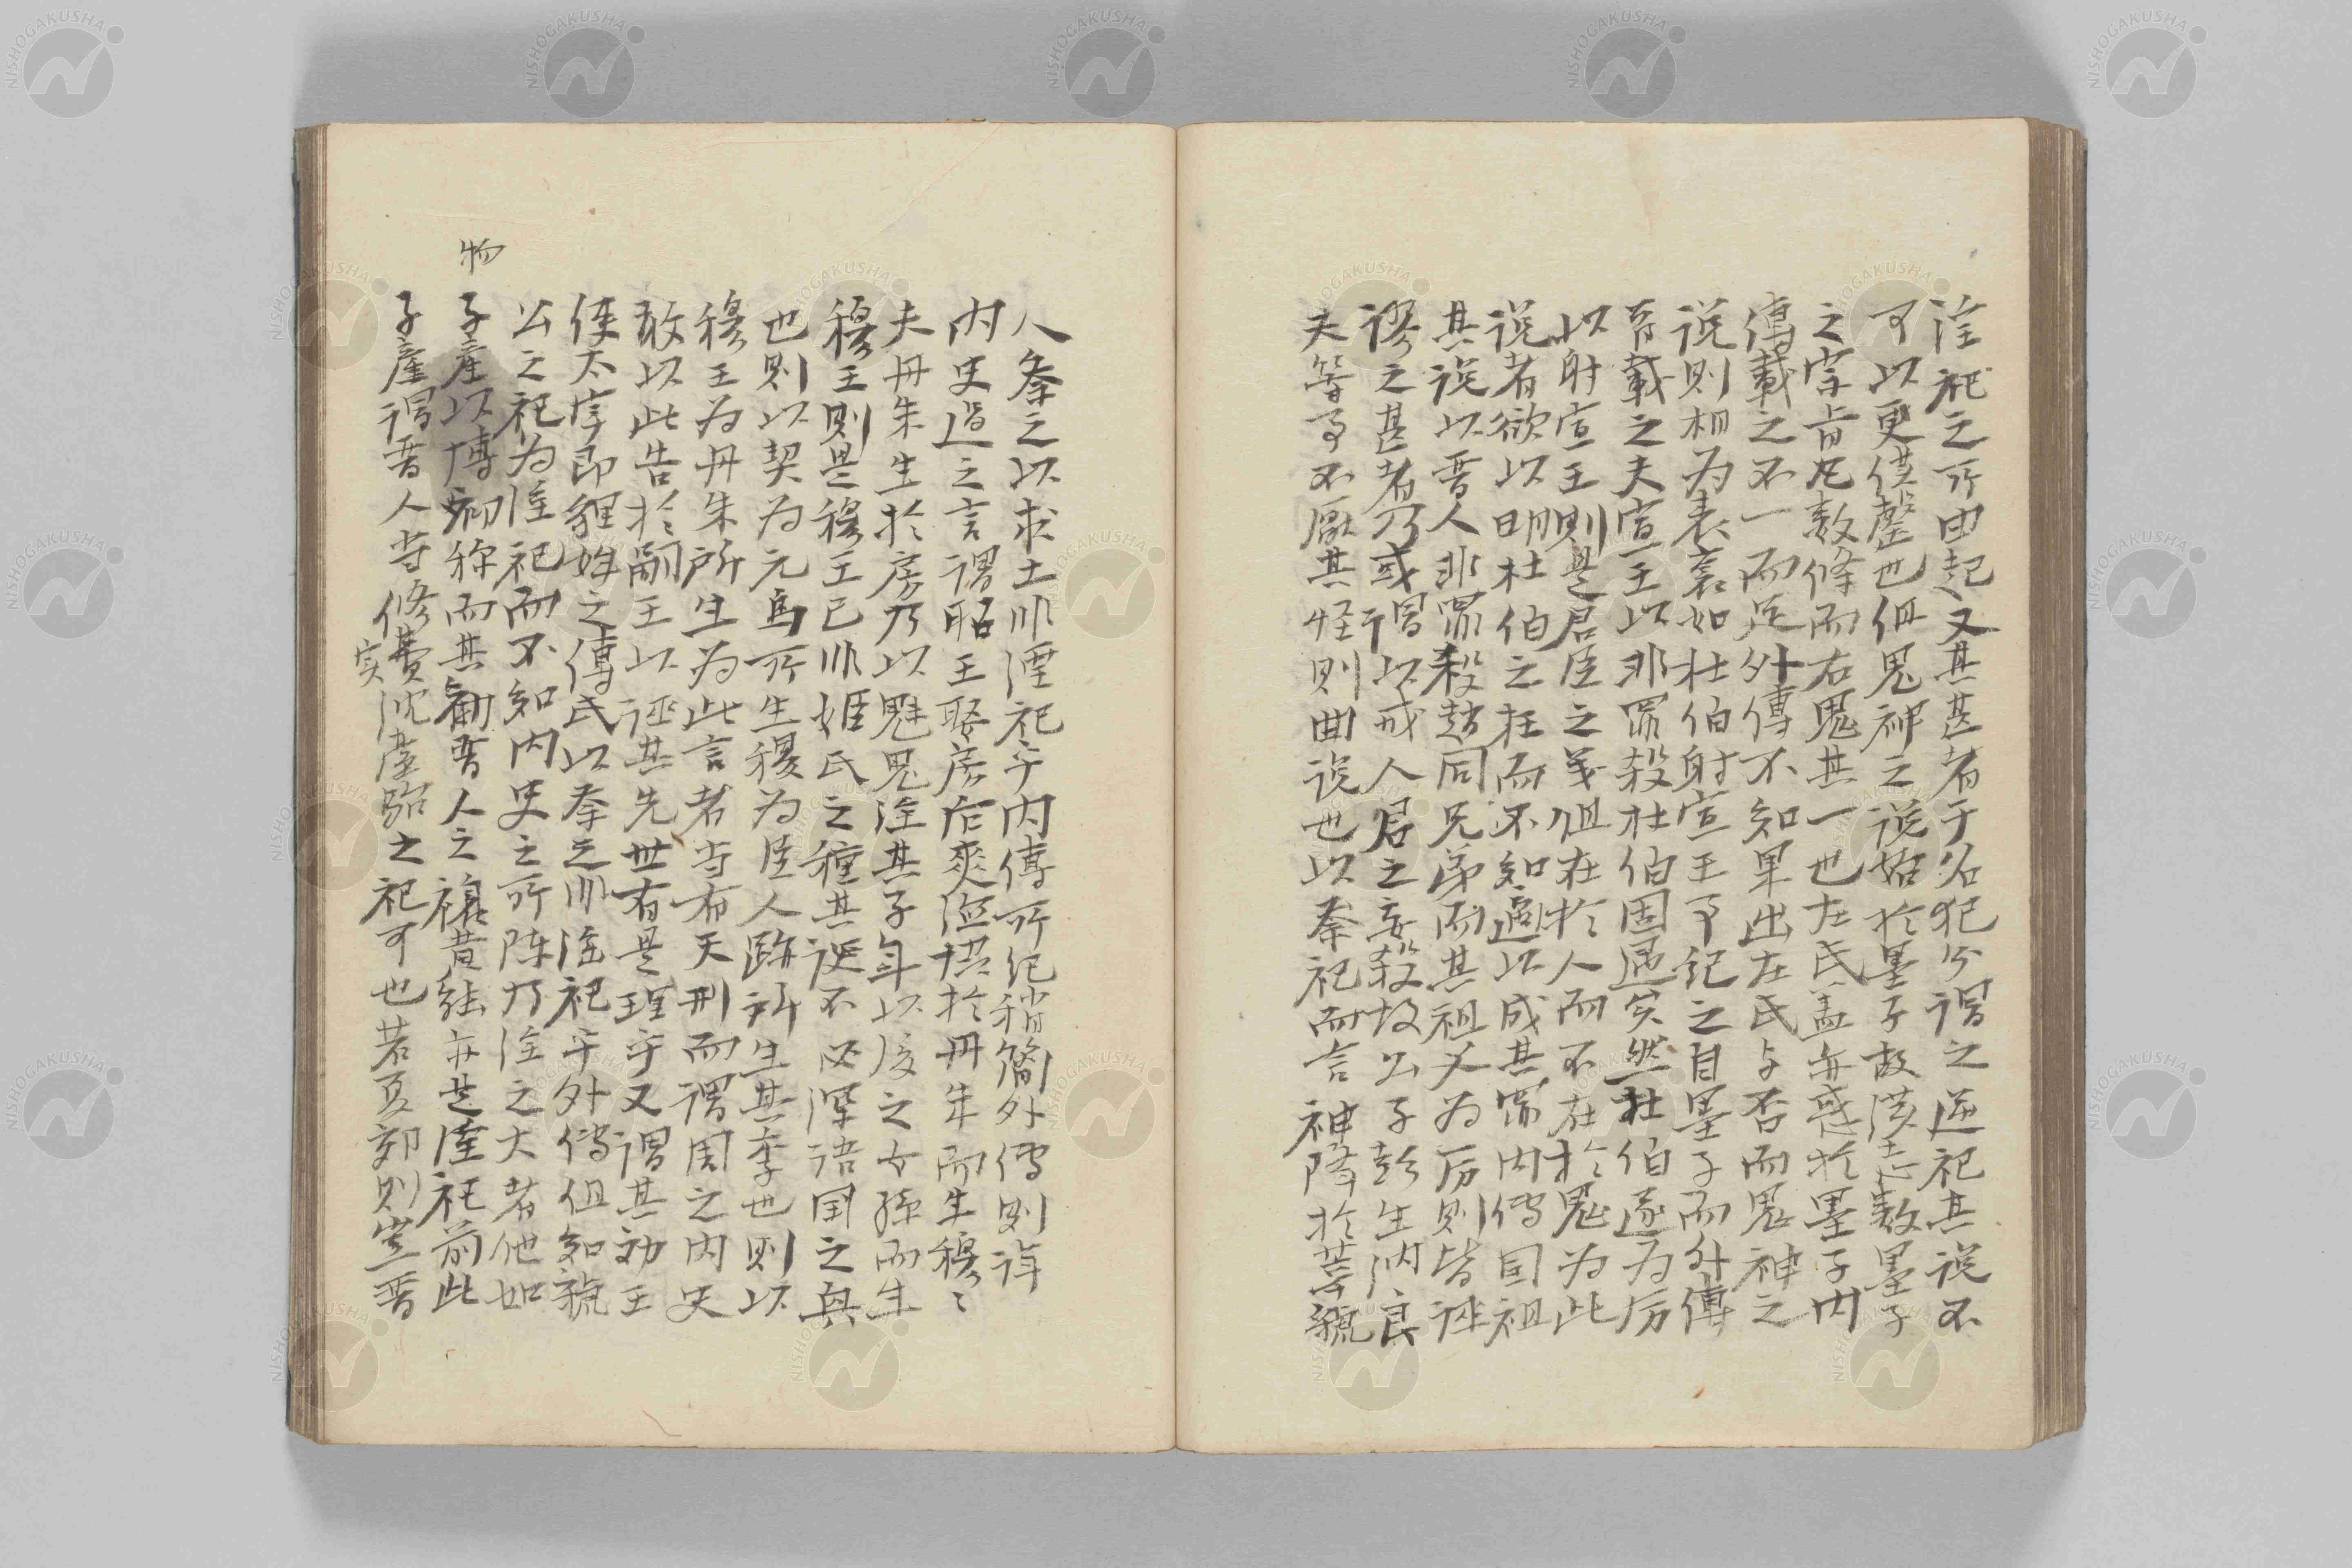 淫祀之所由起又其甚者于名犯分謂之逆祀其説不
可以更僕罄也但鬼神之説始於墨子故漢志数墨子
之宗旨凡数條而右鬼其一也左氏盖亦惑於墨子内
傳載之不一而足外傳不知果出左氏与否而鬼神之
説則相为表裏如杜伯射宣王事紀之自墨子而外傳
育載之夫宣王以非罪殺杜伯固過矣然杜伯遂为厉
以射宣王則是君臣之義但在於人而不在於鬼为此
説者欲以明杜伯之枉而不知適以成其罪内傳国祖
其説以晋人非罪殺趙同兄弟而其祖父为厉則皆誣
謬之甚者乃或謂以戒人君之妄殺故公子彭生渢良
夫等事不厭其怪則曲説也以秦祀而言神降於莘虢
人祭之以求土非淫祀乎内傳所纪稍简外傳則詳
内史过之言謂昭王娶房后爽徳協於丹朱而生穆〻
夫丹朱生於房乃以魅鬼淫其子年以後之女孫而生
穆王則是穆王已非姬氏之種其誕不必深語国之興
也則以契为元鳥所生稷为臣人跡所生其李也則以
穆王为丹朱所生为此言者当有天刑而謂周之内史
敢以此告於嗣王以誣其先世有是理乎又謂其劝王
使太宰即貍姓之傳氏以奉之非淫祀乎外傳但知虢
公之祀为淫祀而不知内史之所陳乃淫之大者他如
子産以博物称而其勧晋人之禳昔経亦是淫祀前此
子産謂晋人当修實沈臺駘之祀可也若夏郊則豈晋
物
実